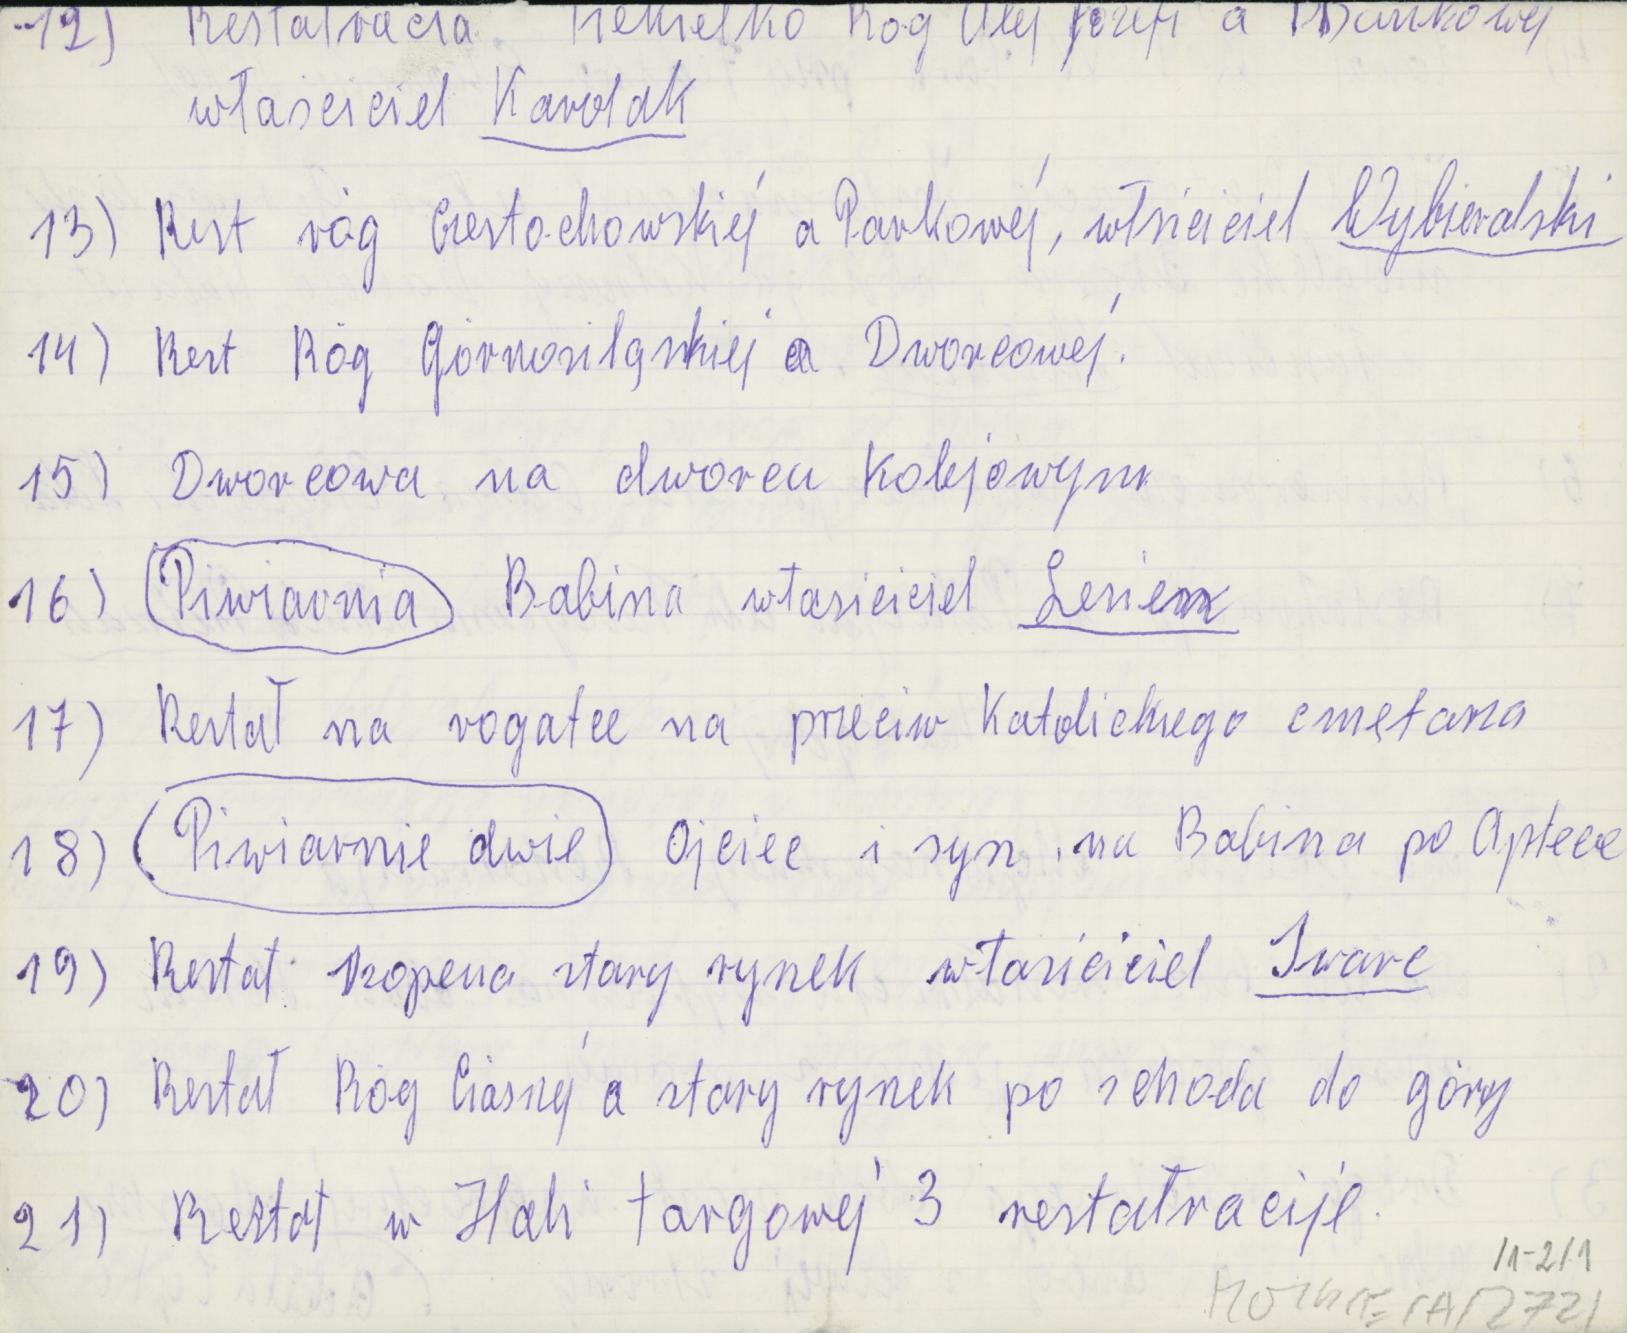 12) Restałracia Piekiełko Róg Alej Józefi a Bankowej
właściciel Karolak
13) Rest róg Czestochowskiej a Parkowej, włsiciciel Wybieralski
14) Rest Róg Górnosiląskiej a Dworcowej.
15) Dworcowa na dworcu Kolejowym
16) Piwiarnia Babina własiciciel
17) Restał na rogatce na przeciw Katolickiego cmętarza
18) Piwiarnie dwie Ojciec i syn na Babina po Aptece
19) Restał. stary rynek własiciciel
20) Restał Róg Ciasnej a stary rynek po schoda do góry
21) Restał w Hali targowej 3 restałracije.
/1-2/1